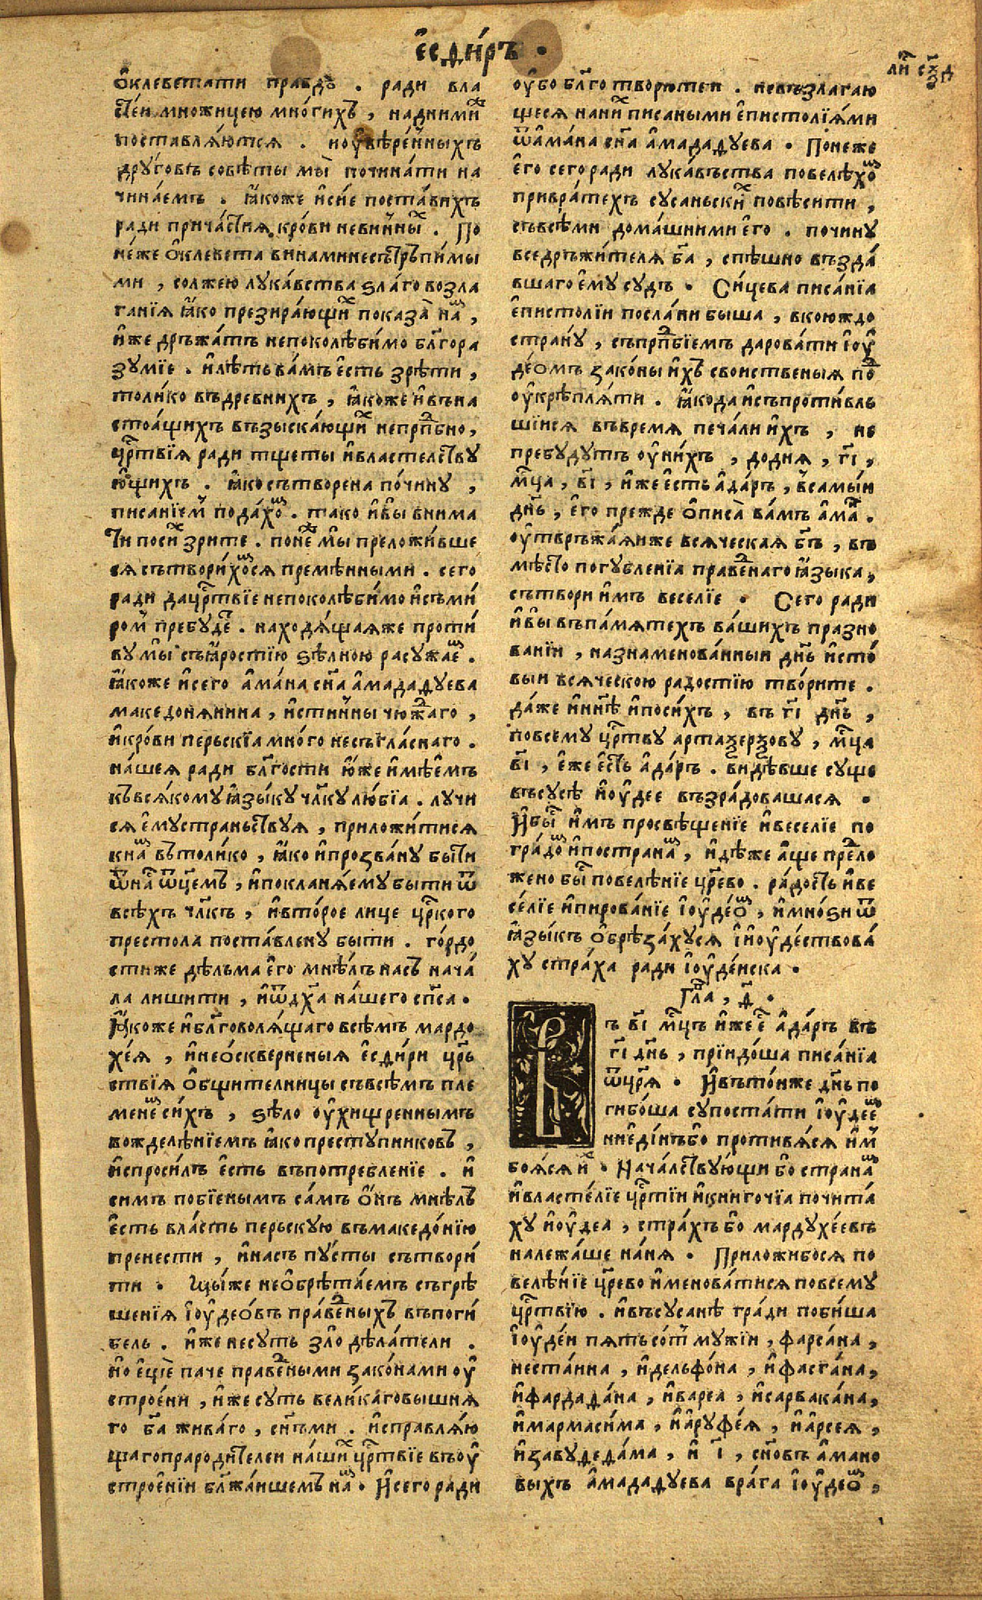 є҆сѳи́ръ ·
ли҃ сл҃д
ѻ҆клеветати правдꙋ̀ . ради вла
сте́и множицею мно́гихъ , надними
поставлѧ́ются . ноꙋ҆вѣре́нныхъ
дрꙋговъ совѣты мы̀ починáти на
чина́емъ . ꙗ҆́коже и҆сїе поставихъ
ради причáстїѧ , кро́ви неви́нны . По
не́же ѻ҆клевета винаминестръпи́мы
ми , солжею лꙋка́вства ѕла́го возла
ганїѧ ꙗ҆́ко презира́ющи показа̀ на ,
и҆́же дръжа́тъ непоколѣби́мо бл҃гора
зꙋмїе . и҆лѣть ва́мъ є҆сть зрѣти ,
толи́ко въдревнихъ , ꙗ҆́коже и҆въна
стоѧ́щихъ възыска́ющи непрпⷣбно ,
црⷭ҇твїѧ ради тщеты и҆властелеⷭ҇твꙋ
ю҆́щихъ . ꙗ҆́косътворена по́чинꙋ ,
писанїе́мъ пода́хоⷨ . тако и҆вы̀ внима
ти поси́ зрите . поне́ мы̀ преложи́вше
сѧ сътвори́хоⷨсѧ премѣ́нными . сего
ради дацрⷭ҇твїе непоколѣби́мо и҆съми́
роⷨ пребꙋде́ . находѧ́щаѧже проти́
вꙋ мы̀ съꙗ҆́ростїю ѕѣлною расꙋжа́е .
ꙗ҆́коже и҆сего а҆ма́на сн҃а а҆мададꙋева
македонѧнина , и҆стинны чюжⷣаго ,
и҆кро́ви перьскїа мно́го несъгла́снаго .
на́шеѧ ради бл҃гости ю҆́же и҆мѣ́емъ
къвсѧ́комꙋ ꙗ҆зы́кꙋ чл҃кꙋ лю́бїа . лꙋчи
сѧ є҆мꙋстраньствꙋѧ , приложи́тисѧ
кнаⷨ въто́лико , ꙗ҆́ко и҆прозва́нꙋ быти
ѿна́ ѿц҃емъ , и҆поклонѧ́емꙋ быти ѿ
всѣхъ чл҃къ , и҆вто́рое лице црⷭ҇кого
престола поста́вленꙋ быти . го́рдо
стиже дѣльма є҆го мнѣ́лъ на́съ нача́
ла лишити , и҆ѿдх҃а на́шего сп҃са .
Ꙗ҆́коже и҆бл҃говолѧ́щаго всѣ́мъ мардо
хе́ѧ , и҆неѻ҆сквернены́ѧ є҆сѳи́ри црⷭ҇ь
ствїѧ ѻ҆бщителницы съвсѣ́мъ пле
менеⷨ си́хъ , ѕѣло ꙋ҆хищреннымъ
вожделѣ́нїемъ ꙗ҆́ко престꙋпниковъ ,
и҆спроси́лъ є҆сть въпотребленїе . и҆
симъ побїенымъ са́мъ ѻ҆́нъ мнѣ́лъ
є҆сть вла́сть перьскꙋю въмакедо́нїю
пренести , и҆на́съ пꙋ́сты сътвори́
ти . Цы́же неѻ҆брѣта́емъ съгрѣ
шенїѧ і҆ꙋде́ѡвъ пра́веⷣныхъ въпоги́
бель . и҆́же несꙋть зло дѣ́латели .
но є҆ще́ паче пра́веⷣными зако́нами ꙋ҆
строе́ни , и҆́же сꙋть вели́каговышнѧ
го б҃а жива́го , сн҃ьми . и҆справлѧ́ю
щагопрароди́телеи на́ши црⷭ҇твїе въꙋ҆
строе́нїи бл҃жа́ишемъ наⷨ . И҆сего ради
ꙋ҆бо бл҃го творите́и . невъзлагаю
щесѧ нани́ писаными є҆писто́лїѧми
ѿа҆ма́на сн҃а а҆мададꙋева . Понеже
є҆го сего ради лꙋка́въства повелѣ́хоⷨ
привра́техъ сꙋса́ньски повѣсити ,
съвсѣ́ми дома́шними є҆го . почи́нꙋ
вседръжителѧ б҃а , спѣ́шно възда́
вшаго є҆мꙋ сꙋдъ . Си́цева писа́нїа
є҆писто́лїи посла́ни быша , вкоюждо
странꙋ , съпрпⷣбїемъ дарова́ти і҆ꙋ
де́омъ зако́ны и҆хъ своиственыѧ поⷣ
ꙋ҆крѣплѧ́ти . ꙗ҆́кода и҆съпроти́вль
ши́исѧ въвремѧ печали и҆́хъ , не
пребꙋ́дꙋтъ ꙋ҆ни́хъ , до́днѧ , г҃і ,
мⷭ҇ца , в҃і , и҆́же є҆сть а҆да́ръ , въсамы́и
дн҃ь , є҆го прежде ѻ҆писа̀ ва́мъ а҆ма́ .
ꙋ҆тврьжа́ѧиже всѧ́ческаѧ б҃ъ , въ
мѣ́сто погꙋбленїа пра́веⷣнаго ꙗ҆зы́ка ,
сътвори и҆́мъ веселїе . Сего ради
и҆вы̀ въпа́мѧтехъ ва́шихъ празно
ванїи , назнаменова́нныи дн҃ь и҆сто́
выи всѧ́ческою ра́достїю тво́рите .
да́же и҆ны́нѣ и҆поси́хъ , въ г҃і дн҃ь ,
повсемꙋ црⷭ҇твꙋ артаѯерѯовꙋ , мⷭ҇ца
в҃і , є҆́же є҆сть а҆да́ръ . види́вше сꙋще
въсꙋсѣ́ и҆ꙋде́е възра́довашасѧ .
И҆бы́ и҆́мъ просвѣщенїе и҆веселїе по
гра́доⷨ и҆постранаⷨ , и҆дѣ́же а҆́ще преⷣло
жено бы́ повелѣ́нїе цр҃ево . ра́дость и҆ве
се́лїе и҆пирова́нїе і҆ꙋде́ѡⷨ , и҆мно́ѕи ѿ
ꙗ҆зы́къ ѻ҆брѣ́захꙋсѧ і҆и҆ꙋде́ствова́
хꙋ стра́ха ради і҆ꙋде́иска .
Гл҃а , ѳ҃ .
Въ в҃і мⷭ҇цъ и҆́же є҆́ а҆да́ръ въ
г҃і дн҃ь , прїидо́ша писа́нїа
ѿцр҃ѧ . И҆въто́иже дн҃ь по
гибо́ша сꙋпоста́ти і҆ꙋде́еⷨ
ниеди́нъбо противѧ́сѧ и҆́м
боѧ́сѧ и҆́ . Нача́льствꙋющи бо странаⷨ
и҆власте́лїе црⷭ҇тїи и҆кни́гочїа почита́
хꙋ и҆ꙋде́а , стра́хъ бо мардꙋхе́евъ
належа́ше на́нѧ . Приложибосѧ по
велѣ́нїе цр҃ево и҆менова́тисѧ повсемꙋ
црⷭ҇твїю . и҆въсꙋса́нѣ гра́ди поби́ша
і҆ꙋде́и пѧтьсо́т мꙋжїи , фарса́на ,
неста́нна , и҆дельфо́на , и҆фасга́на ,
и҆фардада́на , и҆вареа , и҆сарвака́на ,
и҆мармаси́ма , и҆а҆рꙋфе́ѧ , и҆а҆рсеѧ ,
и҆завꙋдеѳа́ма , и҆ і҃ , сн҃овъ а҆мано
выхъ а҆мададꙋева вра́га і҆ꙋде́ѡⷨ ,